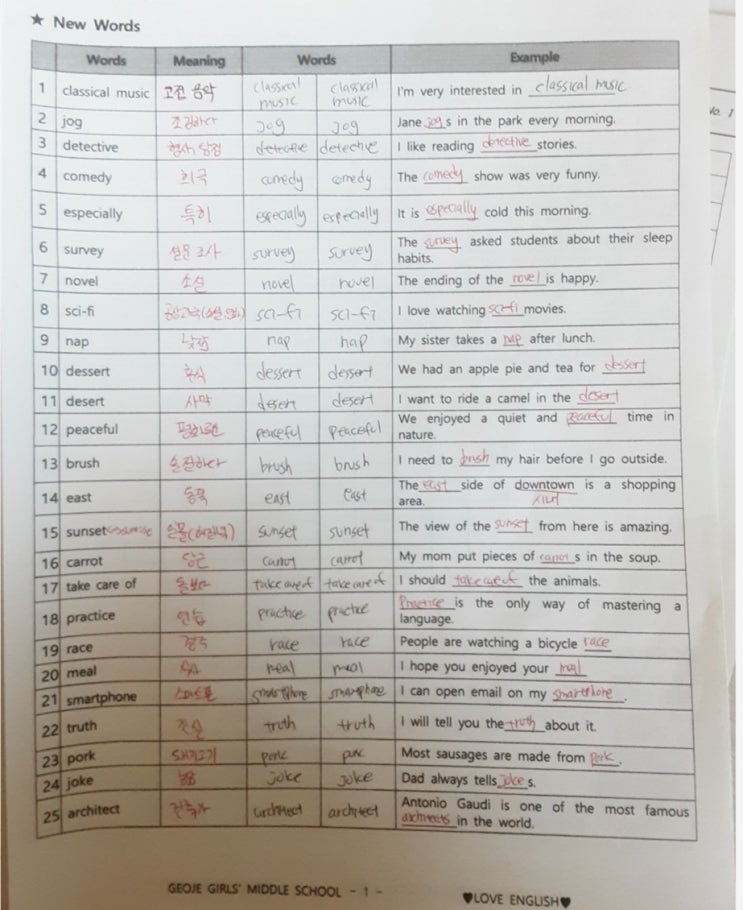 ★ New Words
Words Meaning Words Example
1 classical music 고전 음악 classical music classical music I'm very interested in classical music
2 jog 조깅하다 jog jog Jane jog s in the park every morning.
3 detective 형사, 탐정 detective detective I like reading detective stories.
4 comedy 희극 comedy comedy The comedy show was very funny.
5 especially 특히 especially especially It is especially cold this morning.
6 survey 설문 조사 survey survey The survey asked students about their sleep
habits.
7 novel 소설 novel novel The ending of the novel is happy.
8 sci-fi sci-fi sci-fi I love watching sci-fi movies.
9 nap 낮잠 nap nap My sister takes a nap after lunch.
10 dessert 후식 dessert dessert We had an apple pie and tea for dessert
11 desert 사막 desert desert I want to ride a camel in the desert
12 peaceful 평화로운 peaceful peaceful We enjoyed a quiet and peaceful time in
nature.
13 brush 손질하다 brush brush I need to brush my hair before I go outside.
14 east 동쪽 east east The east side of downtown is a shopping
area. 시내
15 sunset 일몰 sunset sunset The view of the sunset from here is amazing.
16 carrot 당근 carrot carrot My mom put pieces of carrot s in the soup.
17 take care of 돌보다 take care of take care of I should take care of the animals.
18 practice 연습 practice practice Practice is the only way of mastering a
language.
19 race 경주 race race People are watching a bicycle race
20 meal 식사 meal meal I hope you enjoyed your meal
21 smartphone 스마트폰 smartphone smartphone I can open email on my smartphone.
22 truth 진실 truth truth I will tell you the truth about it.
23 pork 돼지고기 pork pork Most sausages are made from pork.
24 joke 농담 joke joke Dad always tells joke s.
25 architect 건축가 architect architect Antonio Gaudi is one of the most famous
architects in the world.
GEOJE GIRLS' MIDDLE SCHOOL - 1 -
♥LOVE ENGLISH♥
No. 1